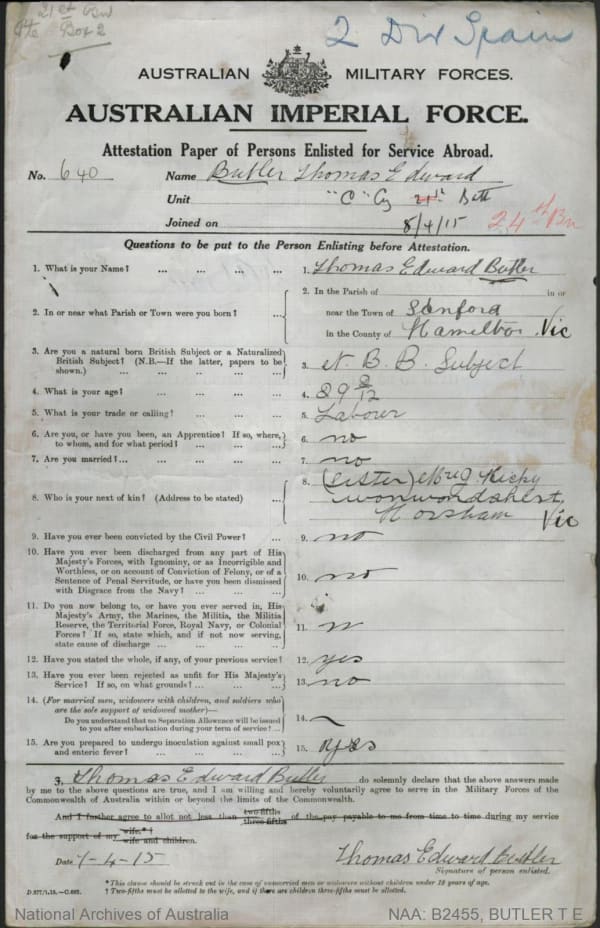 21st Bn
Box 2
2 Div Spain
AUSTRALIAN MILITARY FORCES.
AUSTRALIAN IMPERIAL FORCE.
Attestation Paper of Persons Enlisted for Service Abroad.
No. 640 Name Butler Thomas Edward
Unit "C" Coy 21st Batt
Joined on 8/4/15 24th Bn
Questions to be put to the Person Enlisting before Attestation.
1. What is your Name? ... ... ... ... 1. Thomas Edward Butler
2. In or near what Parish or Town were you born? ... 2. In the Parish of in or
near the Town of Sanford
in the County of Hamelton Vic
3. Are you a natural born British Subject or a Naturalized British Subject? (N.B.—If the latter, papers to be shown.) ... ... ... ... 3. N. B. B. Subject
4. What is your age? ... ... ... ... 4. 29 8/12
5. What is your trade or calling? ... ... ... 5. Labourer
6. Are you, or have you been, an Apprentice? If so, where, to whom, and for what period? ... ... ... 6. no
7. Are you married?... ... ... ... ... 7. no
8. Who is your next of kin? (Address to be stated) ... 8. (Sister) Mrs
Horsham Vic
9. Have you ever been convicted by the Civil Power? ... 9. no
10. Have you ever been discharged from any part of His Majesty's Forces, with Ignominy, or as Incorrigible and Worthless, or on account of Conviction of Felony, or of a Sentence of Penal Servitude, or have you been dismissed with Disgrace from the Navy? ... ... ... 10. no
11. Do you now belong to, or have you ever served in, His Majesty's Army, the Marines, the Militia, the Militia Reserve, the Territorial Force, Royal Navy, or Colonial Forces? If so, state which, and if not now serving, state cause of discharge ... ... ... ... 11. no
12. Have you stated the whole, if any, of your previous service? 12. yes
13. Have you ever been rejected as unfit for His Majesty's Service? If so, on what grounds? ... ... ... 13. no
14. (For married men, widowers with children, and soldiers who are the sole support of widowed mother)—
Do you understand that no Separation Allowance will be issued to you after embarkation during your term of service?... 14. ~
15. Are you prepared to undergo inoculation against small pox and enteric fever? ... ... ... ... 15. yes
I, Thomas Edward Butler do solemnly declare that the above answers made
by me to the above questions are true, and I am willing and hereby voluntarily agree to serve in the Military Forces of the
Commonwealth of Australia within or beyond the limits of the Commonwealth.
And I further agree to allot not less than two-fifths three-fifths of the pay payable to me from time to time during my service
for the support of my wife.*† wife and children.
Date 7-4-15 Thomas Edward Butler
Signature of person enlisted.
* This clause should be struck out in the case of unmarried men or widowers without children under 18 years of age.
† Two-fifths must be allotted to the wife, and if there are children three-fifths must be allotted.
National Archives of Australia NAA: B2455, BUTLER T E